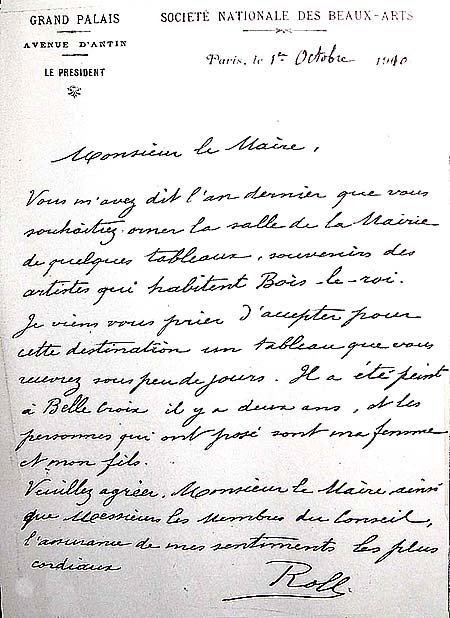 GRAND PALAIS
AVENUE D'ANTIN
LE PRESIDENT
SOCIÉTÉ NATIONALE DES BEAUX-ARTS
Paris, le 1er Octobre 1910
Monsieur le Maire,
Vous m'avez dit l'an dernier que vous
souhaitiez orner la salle de la Mairie
de quelques tableaux, souvenirs des
artistes qui habitent Bois-le-roi.
Je viens vous prier d'accepter pour
cette destination un tableau que vous
recevrez sous peu de jours. Il a été peint
à Belle Croix il y a deux ans, et les
personnes qui ont posé sont ma femme
et mon fils.
Veuillez agréer, Monsieur le Maire, ainsi
que Messieurs les Membres du Conseil,
l'assurance de mes sentiments les plus
cordiaux
Roll.